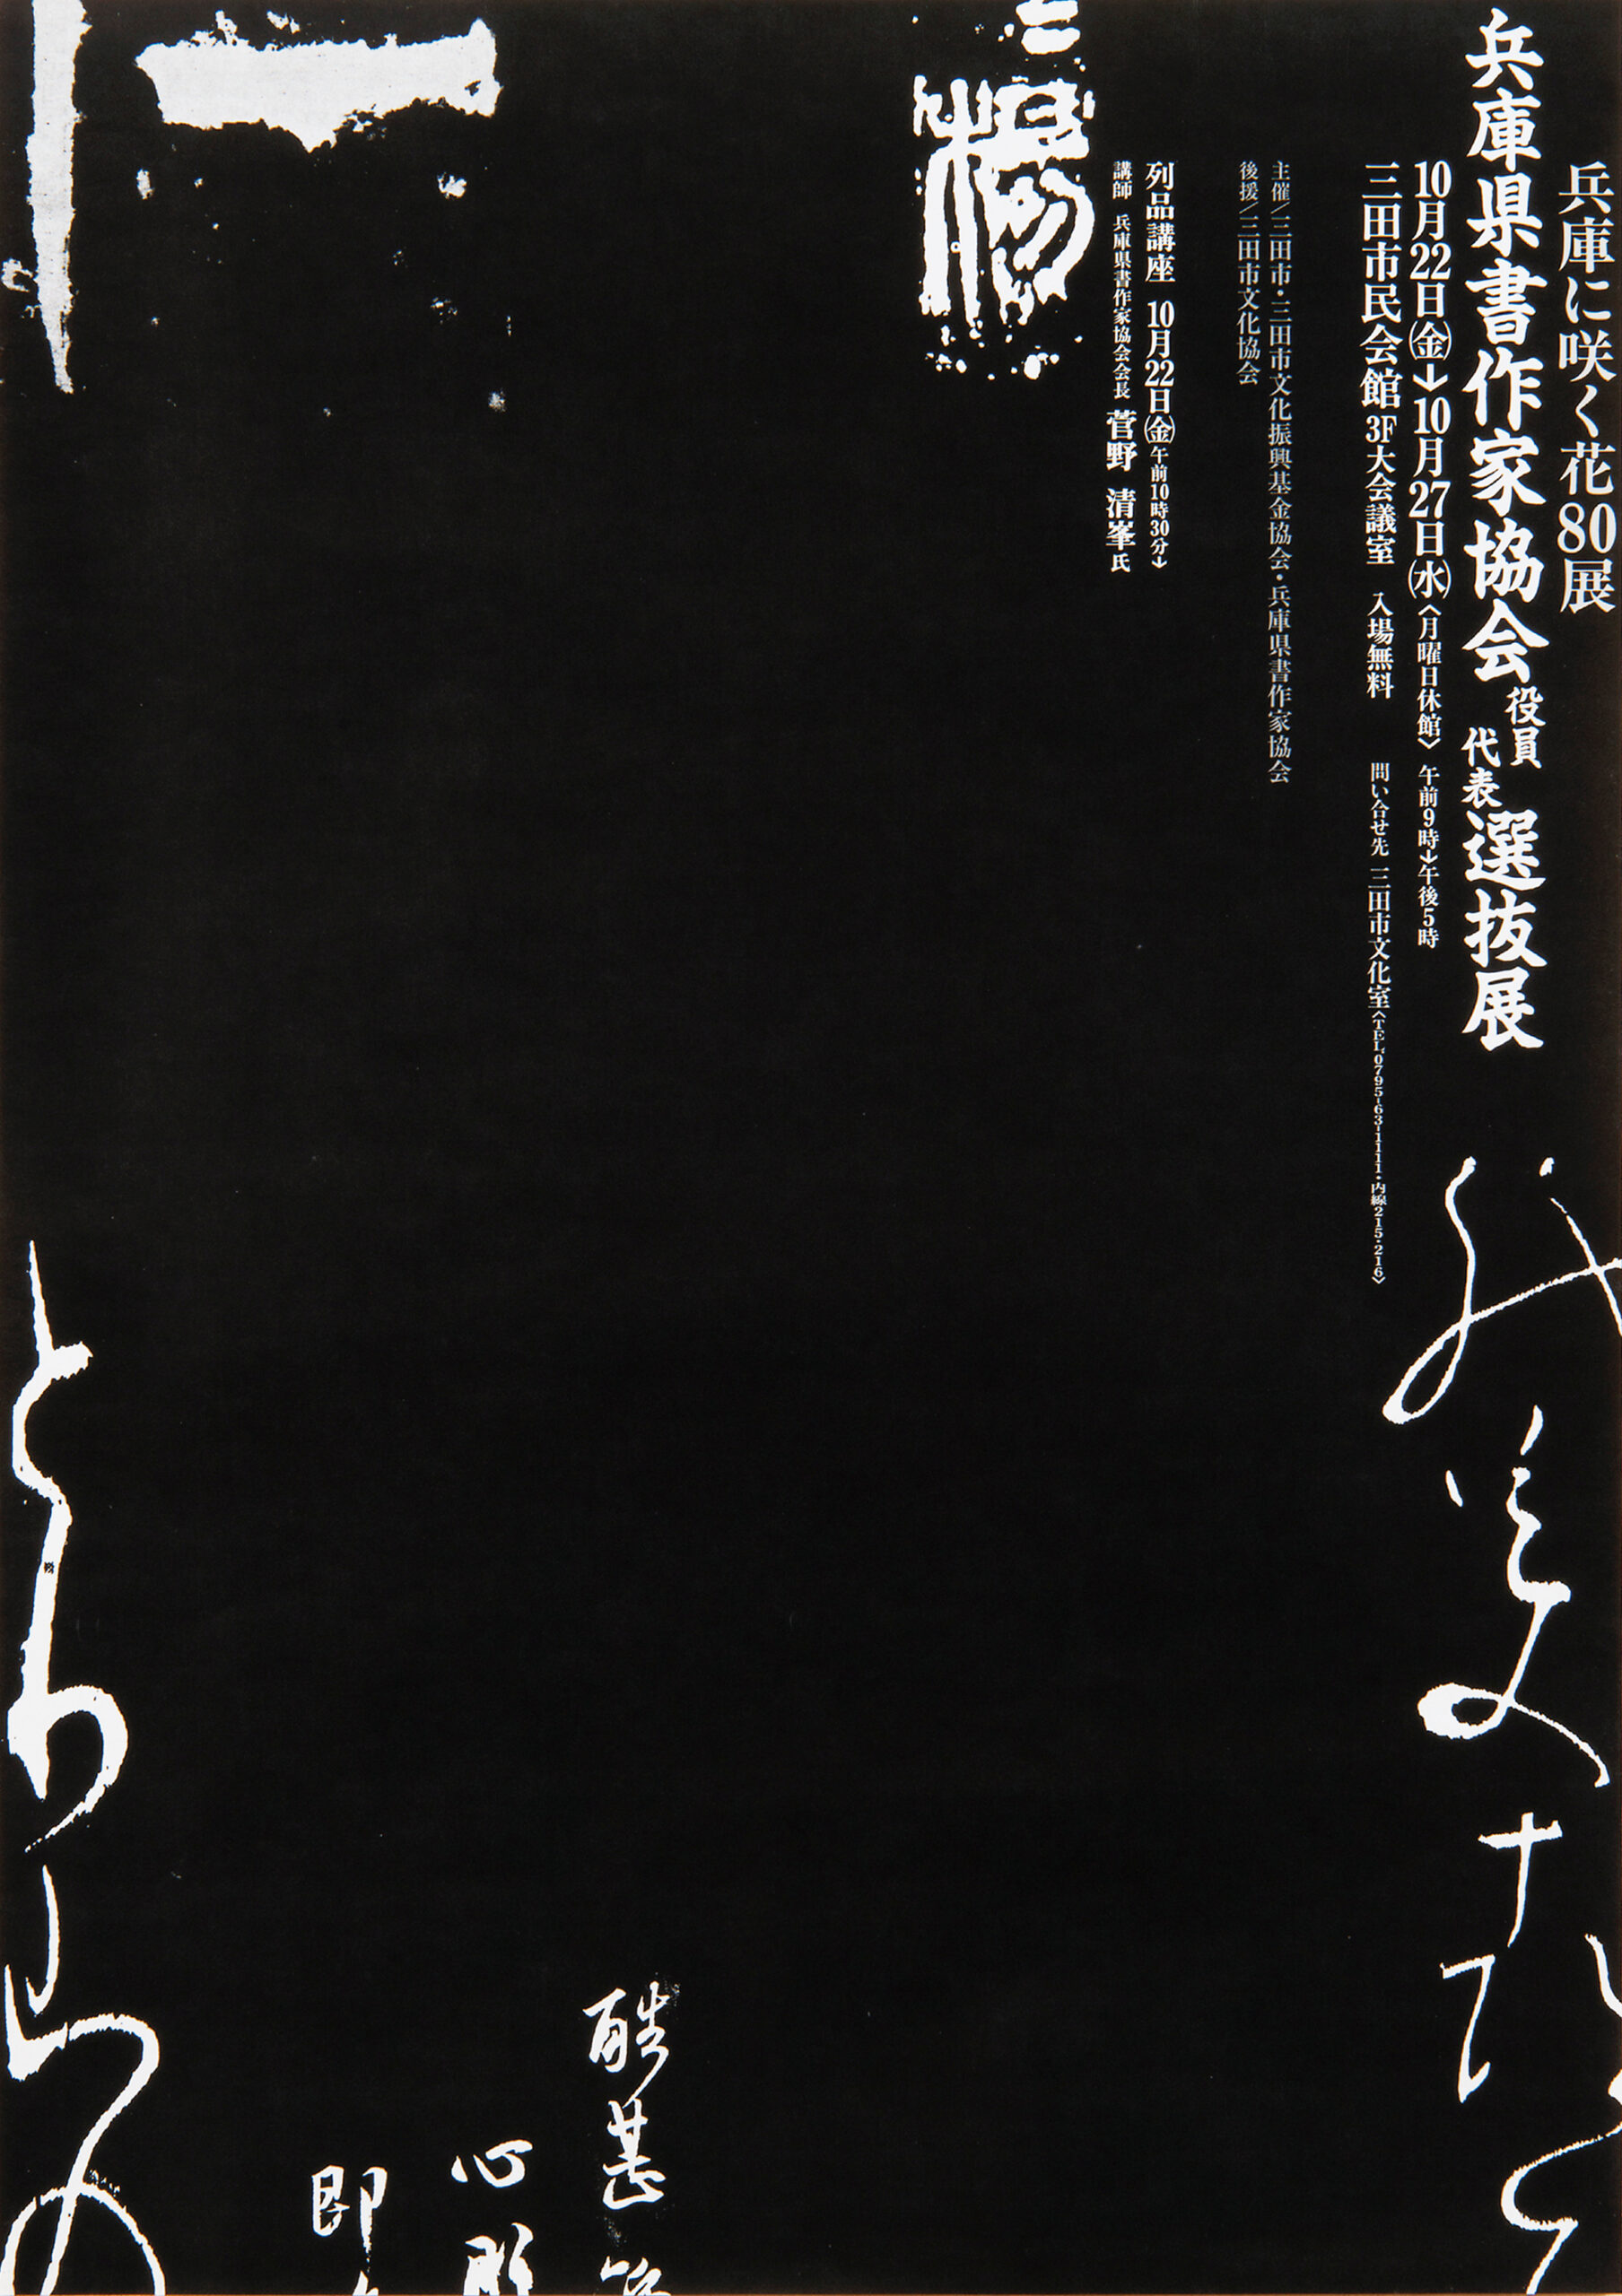 兵庫に咲く花80展
兵庫県書作家協会役員代表選抜展
10月22日㈮↓10月27日㈬〈月曜日休館〉午前9時↓午後5時
三田市民会館3F大会議室 入場無料 問い合せ先 三田市文化室〈TEL0795-63-1111・内線215・216〉
主催/三田市・三田市文化振興基金協会・兵庫県書作家協会
後援/三田市文化協会
列品講座 10月22日㈮午前10時30分↓
講師 兵庫県書作家協会会長 菅野 清峯氏
酷甚
心
即